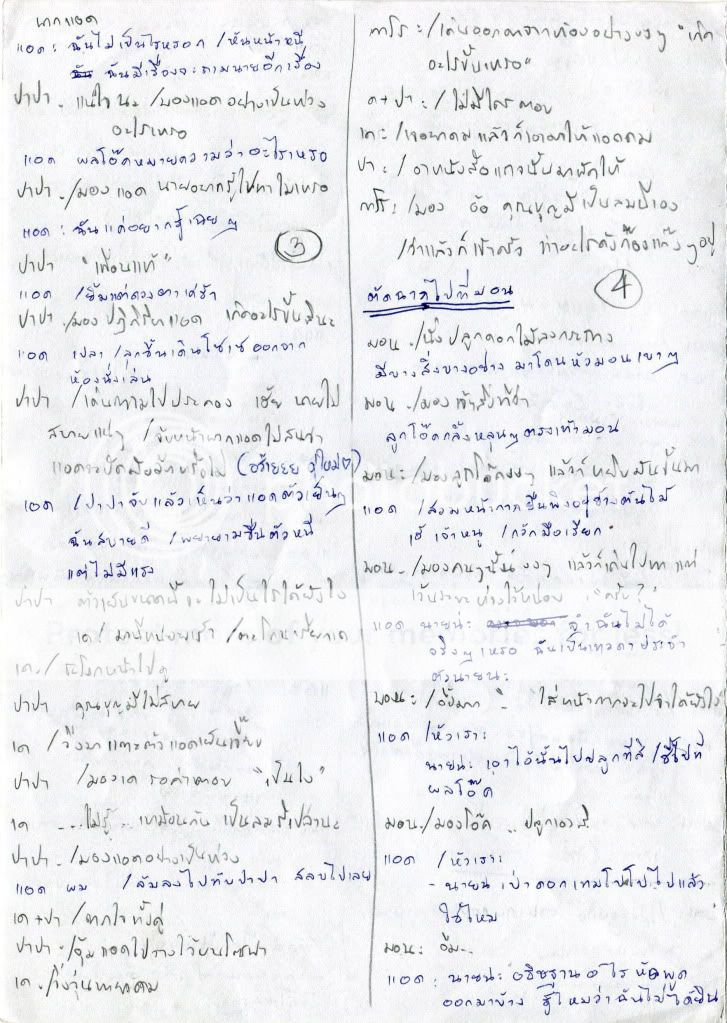 แอด : ฉันไม่เป็นไรหรอก /หันหน้าหนี
ฉันมีเรื่องจะถามนายอีกเรื่อง
ปาปา - แน่ใจนะ /มองแอดอย่างเป็นห่วง
อะไรเหรอ
แอด ผลโอ๊คหมายความว่าอะไรเหรอ
ปาปา - /มองแอด นายอยากรู้ไปทำไมเหรอ
แอด : ฉันแค่อยากรู้เฉยๆ
3
ปาปา "เพื่อนแท้"
แอด /ยิ้มแต่ดวงตาเศร้า
ปาปา - /มองปฏิกิริยาแอด เกิดอะไรขึ้นสินะ
แอด เปล่า /ลุกขึ้นเดินโซเซออกจาก
ห้องนั่งเล่น
ปาปา /เดินตามไปประคอง เฮ้ย นายไม่
สบายแน่ๆ /จับหน้าผากแอดไม่สนว่า
แอดจะปัดมือออกหรือไม่
แอด /ปาปาจับแล้วเห็นว่าแอดตัวเย็นๆ
ฉันสบายดี /พยายามขืนตัวหนี
แต่ไม่มีแรง
ปาปา ตัวเย็นขนาดนี้จะไม่เป็นไรได้ยังไง
เด /มานี่หน่อยเร็ว /ตะโกนเรียกเด
เด - /ชะโงกหน้าไปดู
ปาปา คุณบุญมีไม่สบาย
เด /วิ่งมาแตะตัวแอดเย็นเจี๊ยบ
ปาปา /มองเด รอคำตอบ "เป็นไง"
เด ...ไม่รู้.. เหมือนกัน เป็นลมรึเปล่านะ
ปาปา - /มองแอดอย่างเป็นห่วง
แอด ผม /ล้มลงไปทับปาปา สลบไปเลย
เด + ปา /ตกใจทั้งคู่
ปาปา - /อุ้มแอดไปวางไว้บนโซฟา
เด - /วิ่งวุ่นหายาดม
/เดินออกมาจากห้องอย่างงงๆ "เกิด
อะไรขึ้นเหรอ"
ด + ปา : /ไม่มีใครตอบ
เด : /เจอยาดมแล้วก็เอามาให้แอดดม
ปา : /เอาหนังสือแถวนั้นมาพัดให้
/มอง อ๋อ คุณบุญมีเป็นลมนี่เอง
/ว่าแล้วก็เข้าครัว
4
ตัดฉากไปที่มอน
มอน - /นั่งปลูกดอกไม้ลงกระถาง
มีบางสิ่งบางอย่าง มาโดนหัวมอนเบาๆ
มอน - /มองเจ้าสิ่งที่ว่า
ลูกโอ๊คกลิ้งหลุนๆตรงเท้ามอน
มอน : /มองลูกโอ๊คงงๆ แล้วก็หยิบมันขึ้นมา
แอด /สวมหน้ากากยืนพิงอยู่ข้างต้นไม้
เฮ้ เจ้าหนู /กวักมือเรียก
มอน - /มองคนๆนั้นงงๆ แล้วก็เดินไปหา แต่
เว้นระยะห่างไว้หน่อย "ครับ?"
แอด นายน่ะ จำฉันไม่ได้
จริงๆเหรอ ฉันเป็นเทวดาประจำ
ตัวนายนะ
มอน : /อึ้งมาก ใส่หน้ากากจะไปจำได้ยังไง
แอด /หัวเราะ
นายน่ะ เอาไอ้นั่นไปปลูกที่สิ /ชี้ไปที่
ผลโอ๊ค
มอน - /มองโอ๊ค .. ปลูกเอง
แอด /หัวเราะ
- นายน่ะ เป่าดอกเทมโปโปไปแล้ว
ใช่ไหม
มอน : อืม..
แอด : นายน่ะ อธิษฐานอะไร หัดพูด
ออกมาบ้าง รู้ไหมว่าฉันไม่ได้ยิน